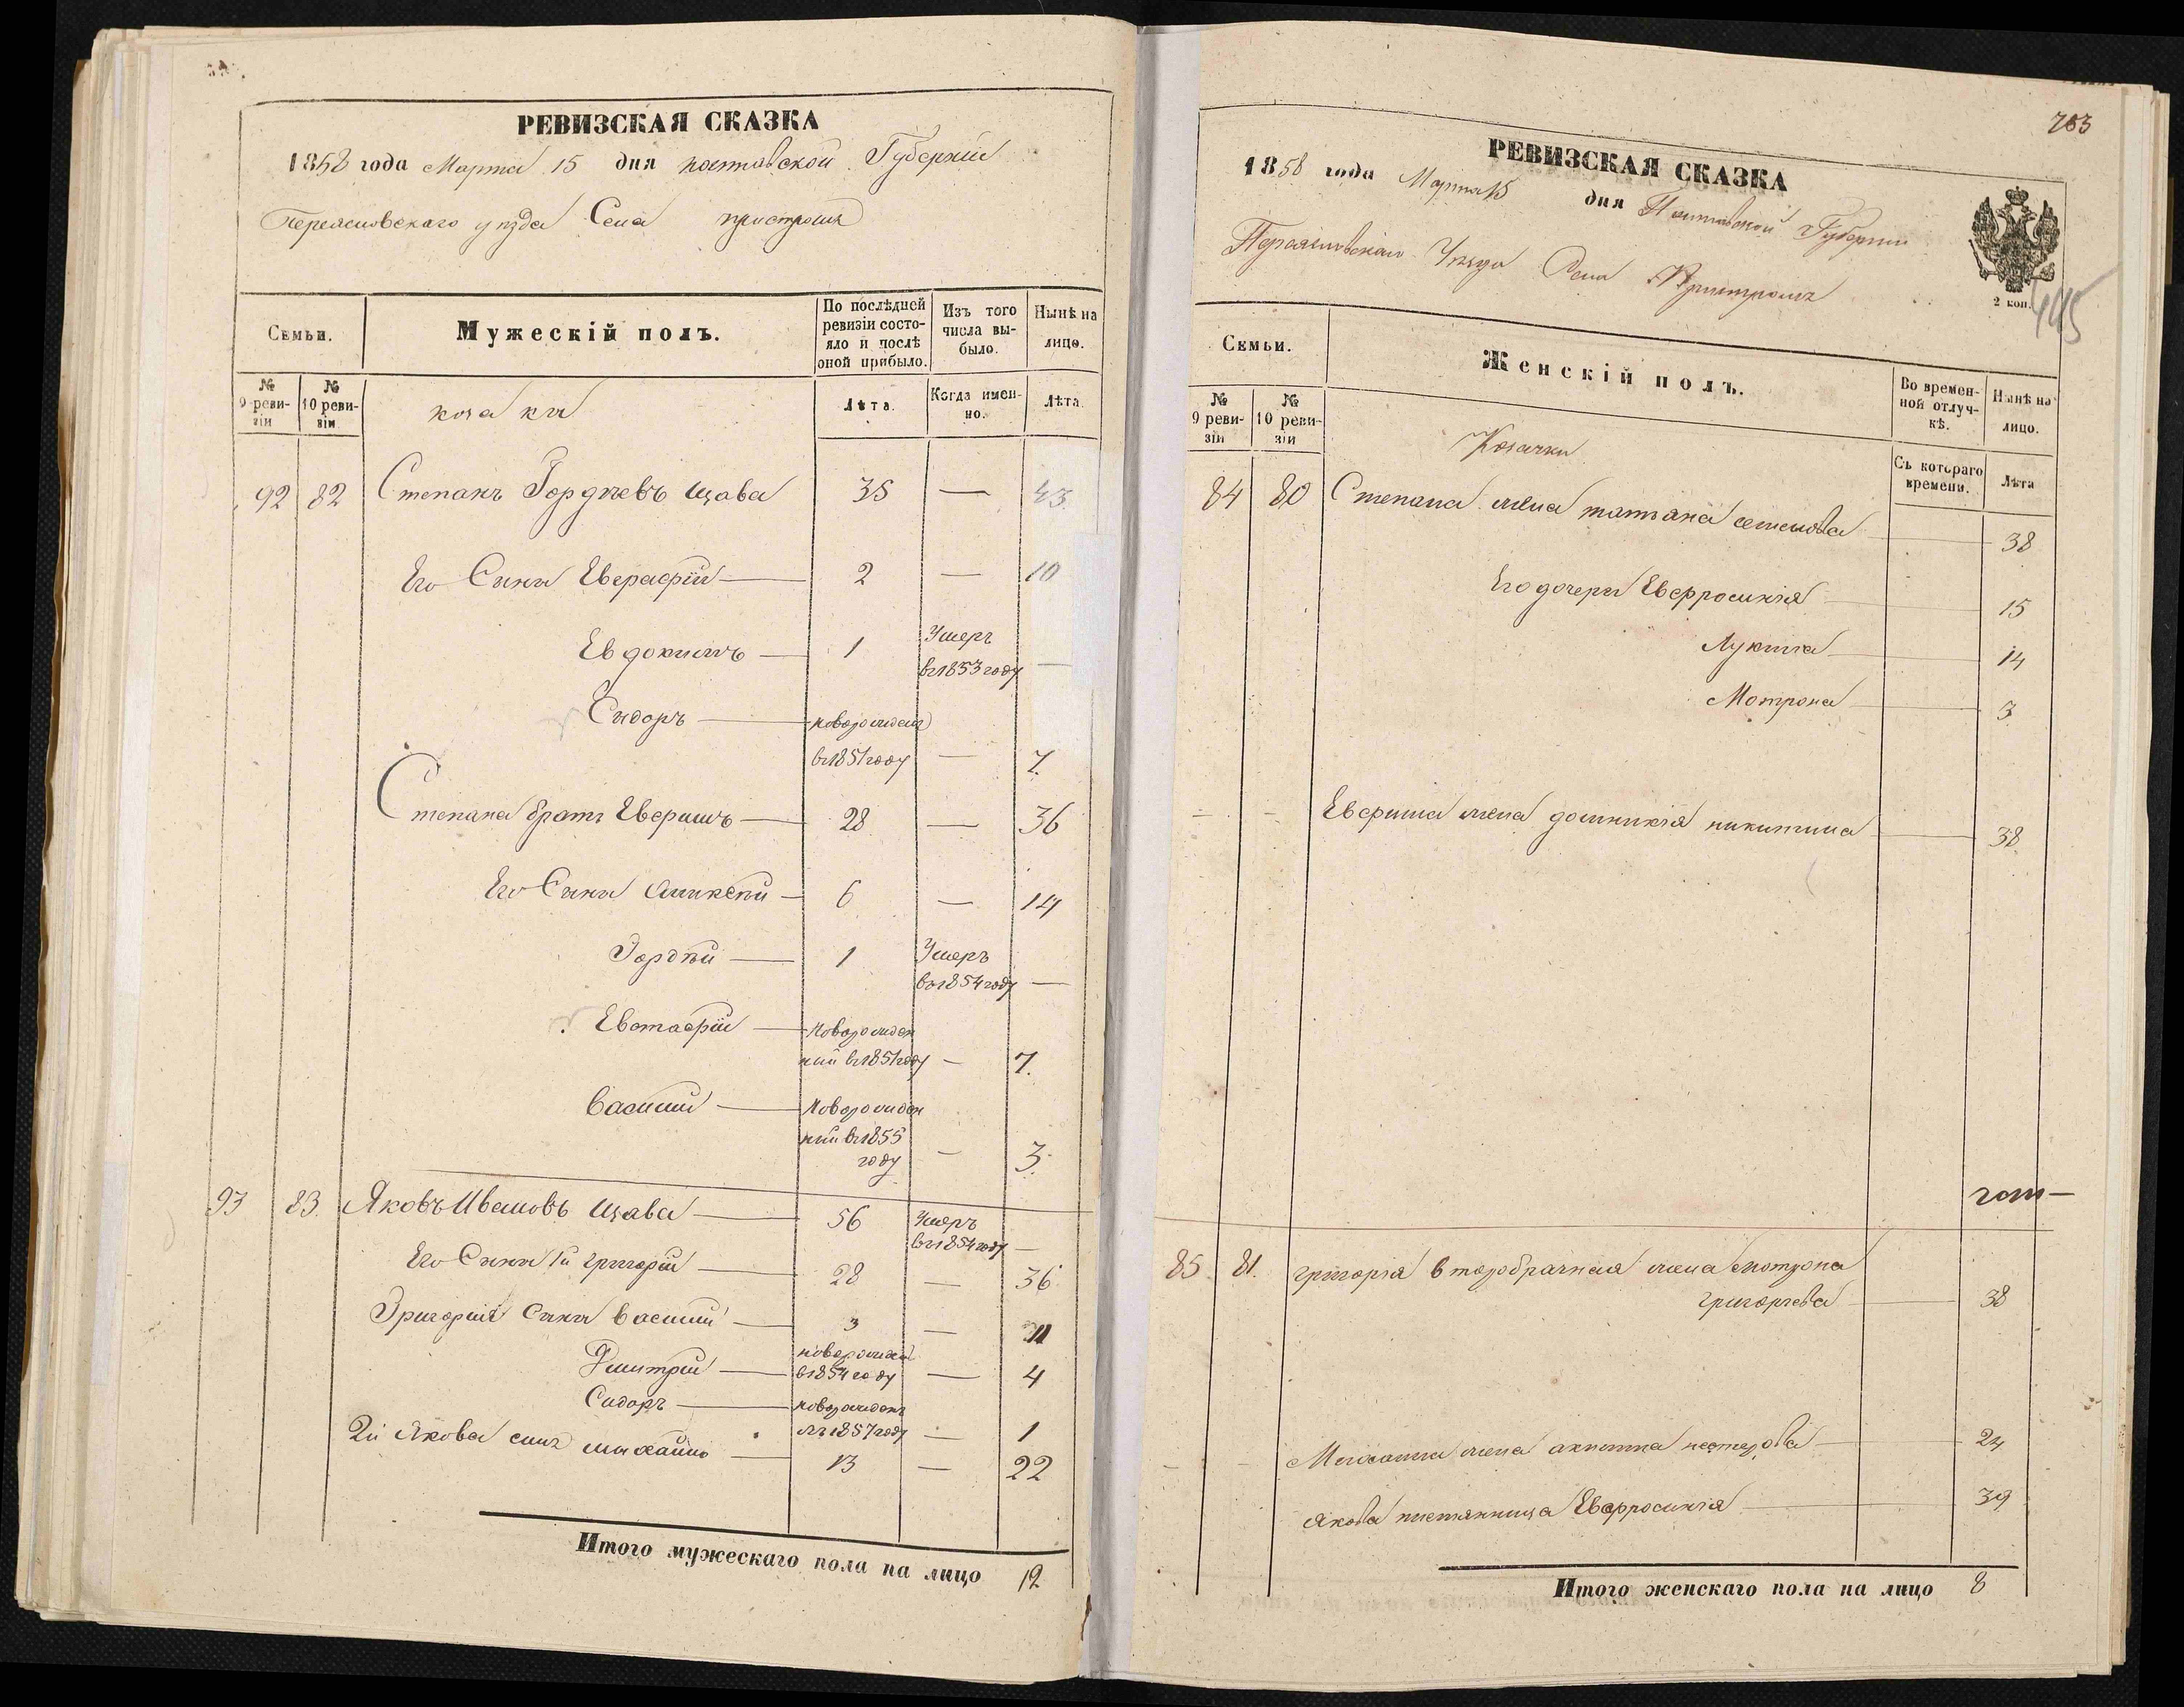 РЕВИЗСКАЯ СКАЗКА
1858 года Марта 15 дня полтавской Губернии
Переясловскаго уѣзда Села пристромъ
Семьи.
Мужескій полъ.
По послѣдней ревизіи состояло и послѣ оной прибыло.
Изъ того числа выбыло.
Нынѣ на лицо.
№ 9 ревизіи
№ 10 ревизіи
козаки
Лѣта.
Когда именно.
Лѣта.
92 82 Степанъ Гордѣевъ Щава 35 — 43
Его Сыны Евстрафій — 2 — 10
Евдокимъ — 1 Умеръ въ 1853 году —
Сидоръ — новорожден въ 1851 году — 7.
Степана братъ Ефимъ — 28 — 36
Его Сыны Аликсѣй — 6 — 14
Гордѣй — 1 Умеръ въ 1854 году —
Евстафій — Новорожденный въ 1851 году — 7.
Василий — Новорожденный въ 1855 году — 3.
93 83. Яковъ Ивановъ Щава — 56 Умеръ въ 1854 году —
Его Сыны 1й григорій — 28 — 36
Григорія Сыны василий — 3 — 11
Дмитрій — новорожден въ 1854 году — 4
Сидоръ — новорожденъ въ 1857 году — 1
2й Якова сынъ михайло — 13 — 22
Итого мужескаго пола на лицо 12
703
РЕВИЗСКАЯ СКАЗКА
1858 года Марта 15 дня Полтавской Губернии
Переясловскаго Уѣзда Села Пристромъ
2 коп.
445
Семьи.
Женскій полъ.
Во временной отлучкѣ.
Нынѣ на лицо.
№ 9 ревизіи
№ 10 ревизіи
Козачки
Съ котораго времени.
Лѣта
84 80 Степана жена татіана семенова — 38
Его дочери Евфросинія — 15
Лукина — 14
Мотрона — 3
- - Ефима жена домникія никитина — 38
85. 81. григорія второбрачная жена мотрона
григорьева — 38
- - Михайла жена акилина нестерова — 24
Якова племянница Евфросинія — 39
Итого женскаго пола на лицо 8